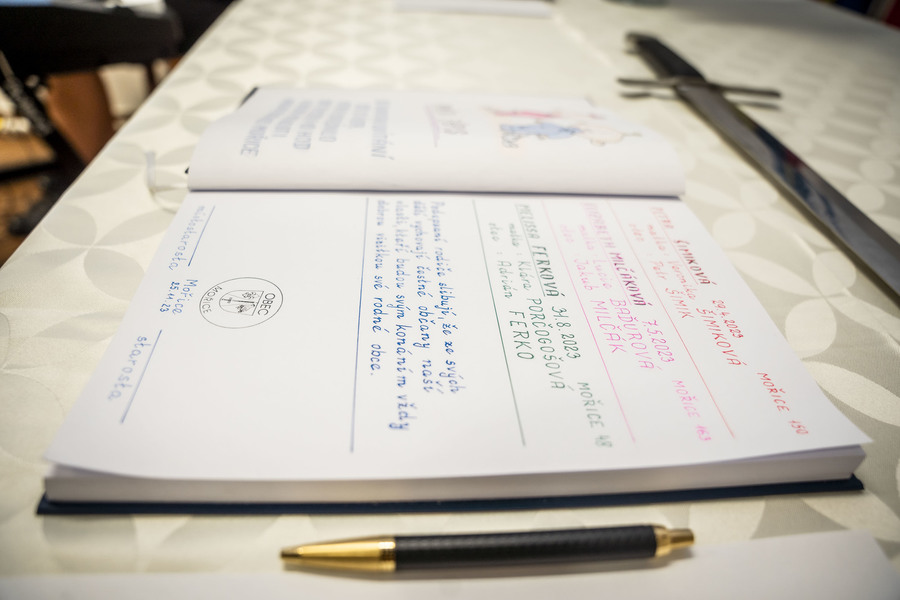 ŠIMÍKOVÁ 29.4.2023 MOŘICE 150
matka: Veronika ŠIMÍKOVÁ
otec: Petr ŠIMÍK
MILČÁKOVÁ 7.5.2023 MOŘICE 163
matka: Lucie BAĎUROVÁ
otec: Jakub MILČÁK
MELISSA FERKOVÁ 31.8.2023 MOŘICE 48
matka: Klára PORČOGOŠOVÁ
otec: Adrián FERKO
Podepsaní rodiče slibují, že ze svých
dětí vychovají čestné občany naší
vlasti, kteří budou svým konáním vždy
dobrou vizitkou své rodné obce.
OBEC
MOŘICE
Mořice
25.11.23
místostarosta
starosta